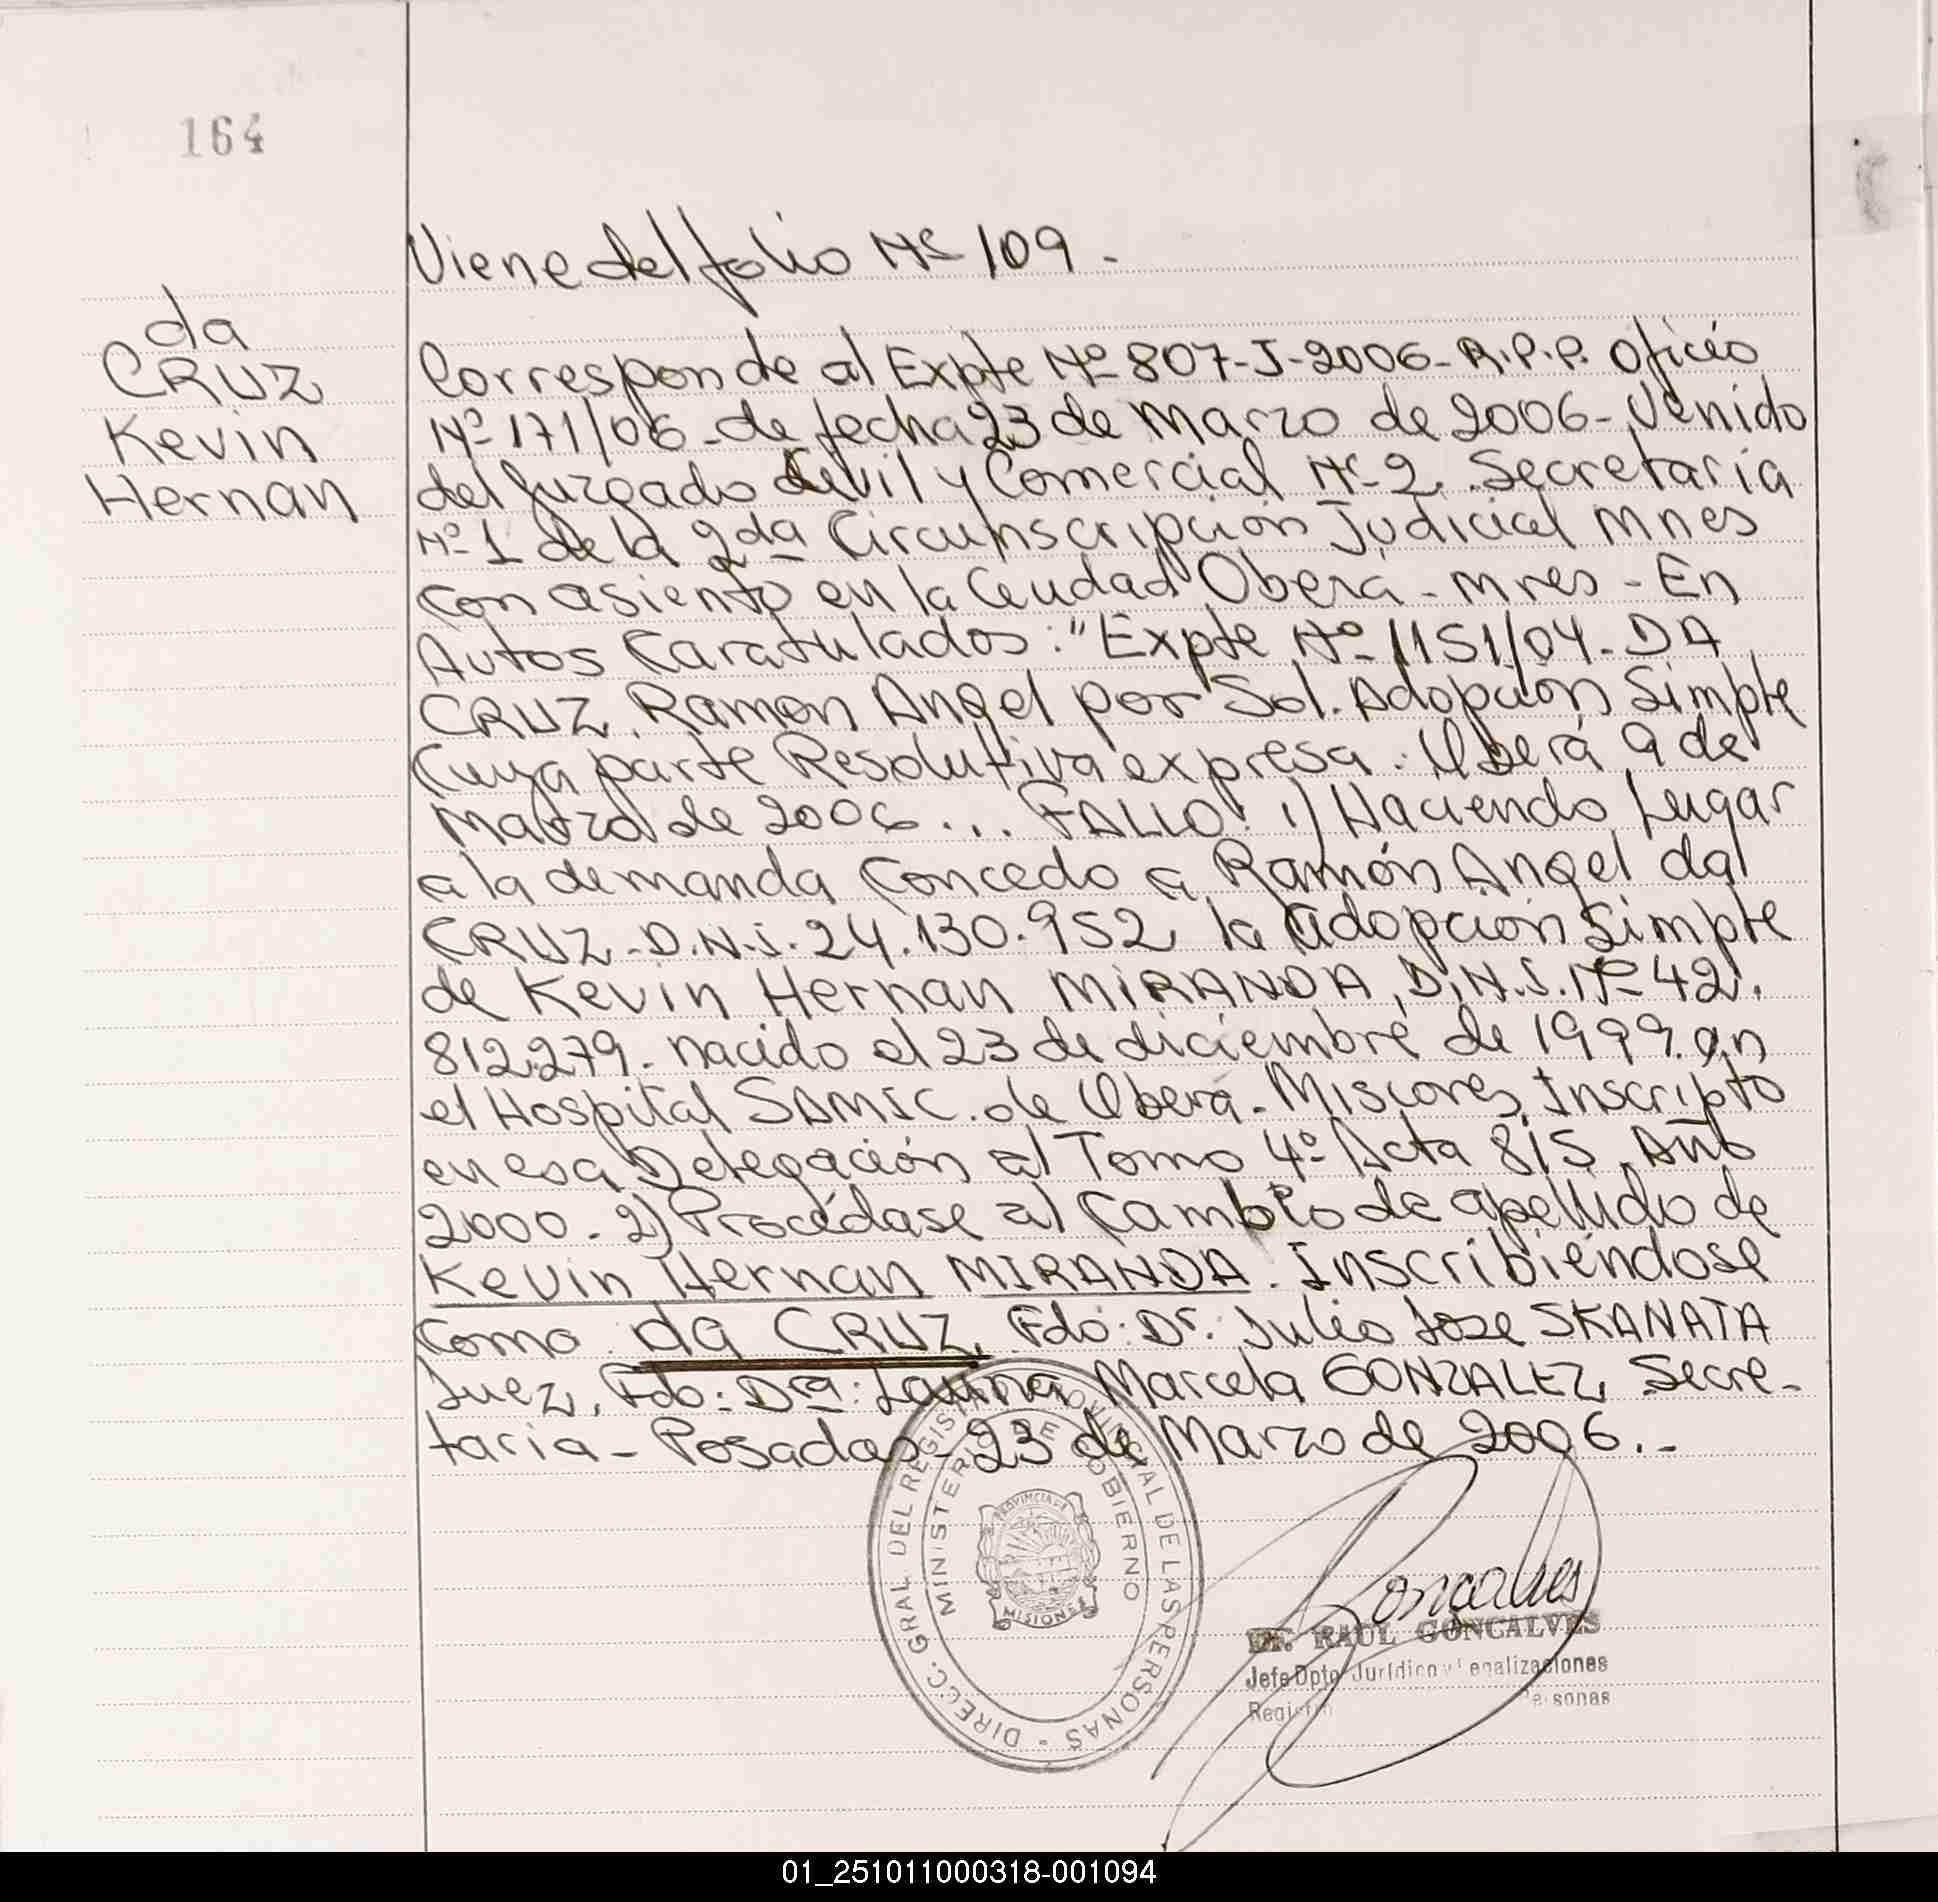 164
Viene del folio Nº 109.-
da
CRUZ
Kevin
Hernan
Corresponde al Expte Nº 807-J-2006-R.P.P. Oficio
Nº 171/06- de fecha 23 de Marzo de 2006- Venido
del Juzgado Civil y Comercial Nº 2. Secretaria
Nº 1 de la 2da Circunscripción Judicial Mnes
con asiento en la Ciudad Oberá - Mnes - En
Autos Caratulados: "Expte Nº 1151/04- DA
CRUZ, Ramon Angel por Sol. Adopción Simple
Cuya parte Resolutiva expresa: Oberá 9 de
Marzo de 2006... FALLO: 1) Haciendo Lugar
a la demanda Concedo a Ramón Angel da
CRUZ-D.N.I. 24.130.952, la adopción Simple
de Kevin Hernan MIRANDA, D.N.I. Nº 42.
812.279. nacido el 23 de diciembre de 1999. en
el Hospital SAMIC. de Oberá- Misiones, Inscripto
en esa Delegación al Tomo 4º Acta 815, Año
2000. 2) Procédase al Cambio de apellido de
Kevin Hernan MIRANDA. Inscribiéndose
Como da CRUZ. Fdo: Dr. Julio Jose SKANATA
Juez, Fdo: Dra: Laura Marcela GONZALEZ, Secre-
taria- Posadas- 23 de Marzo de 2006.-
DIRECC. GRAL. DEL REGISTRO PROVINCIAL DE LAS PERSONAS -
MINISTERIO DE GOBIERNO
PROVINCIA DE
MISIONES
Goncalves
Dr. RAUL GONCALVES
Jefe Dpto Jurídico y Legalizaciones
Personas
01_251011000318-001094